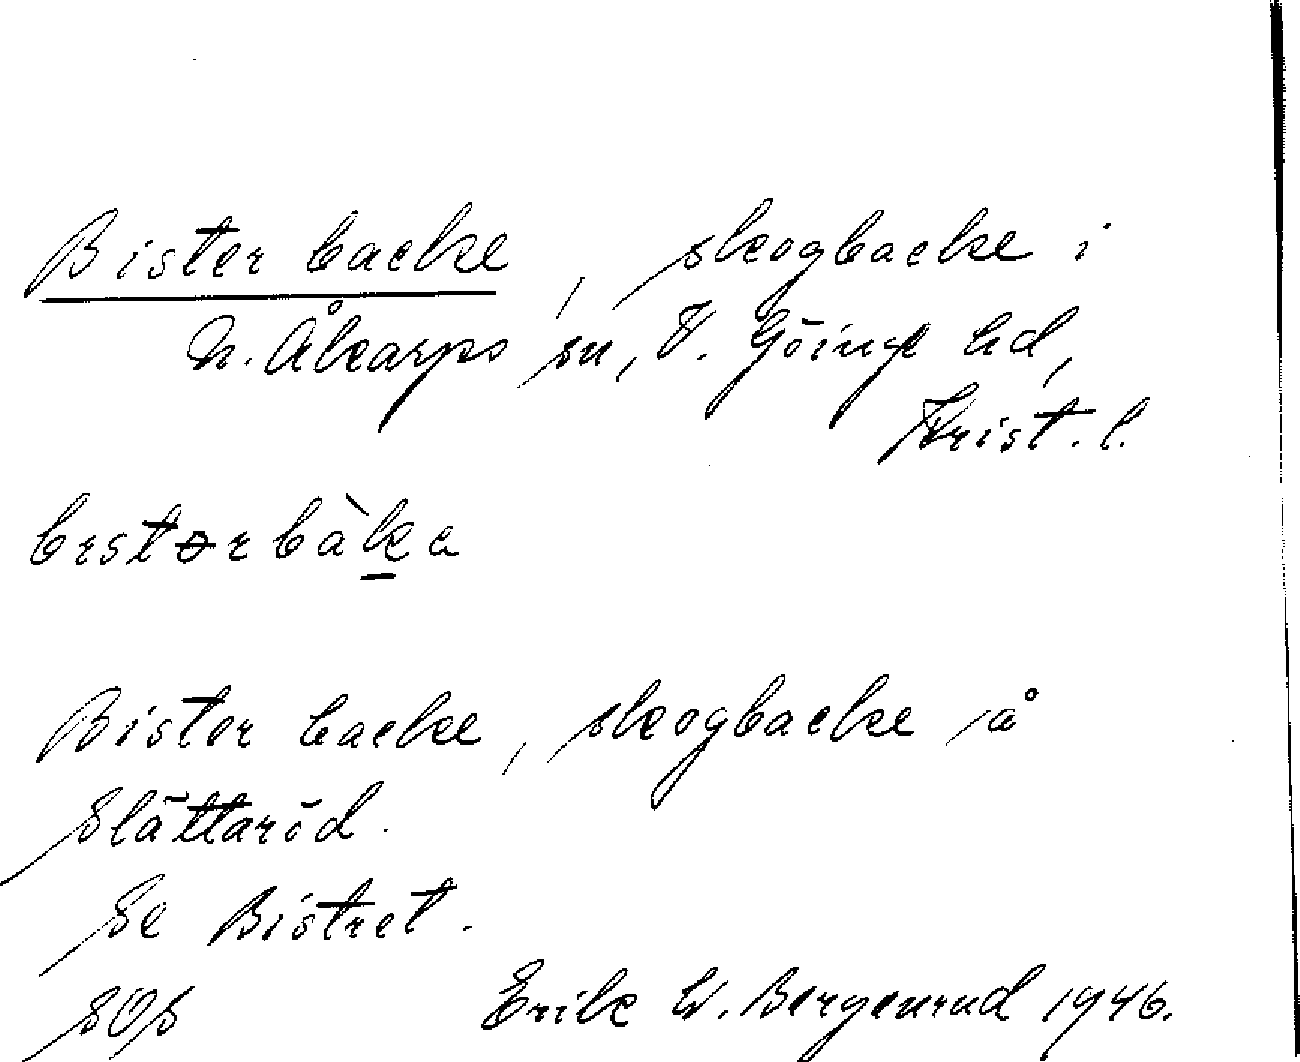 Bister backe, skogbacke i
N. Åkarps sn, V. Göinge hd,
Krist. l.
Bister backe, skogbacke å
Slättaröd.
Se Bistret.
SOS Erik W. Bergenrud 1946.